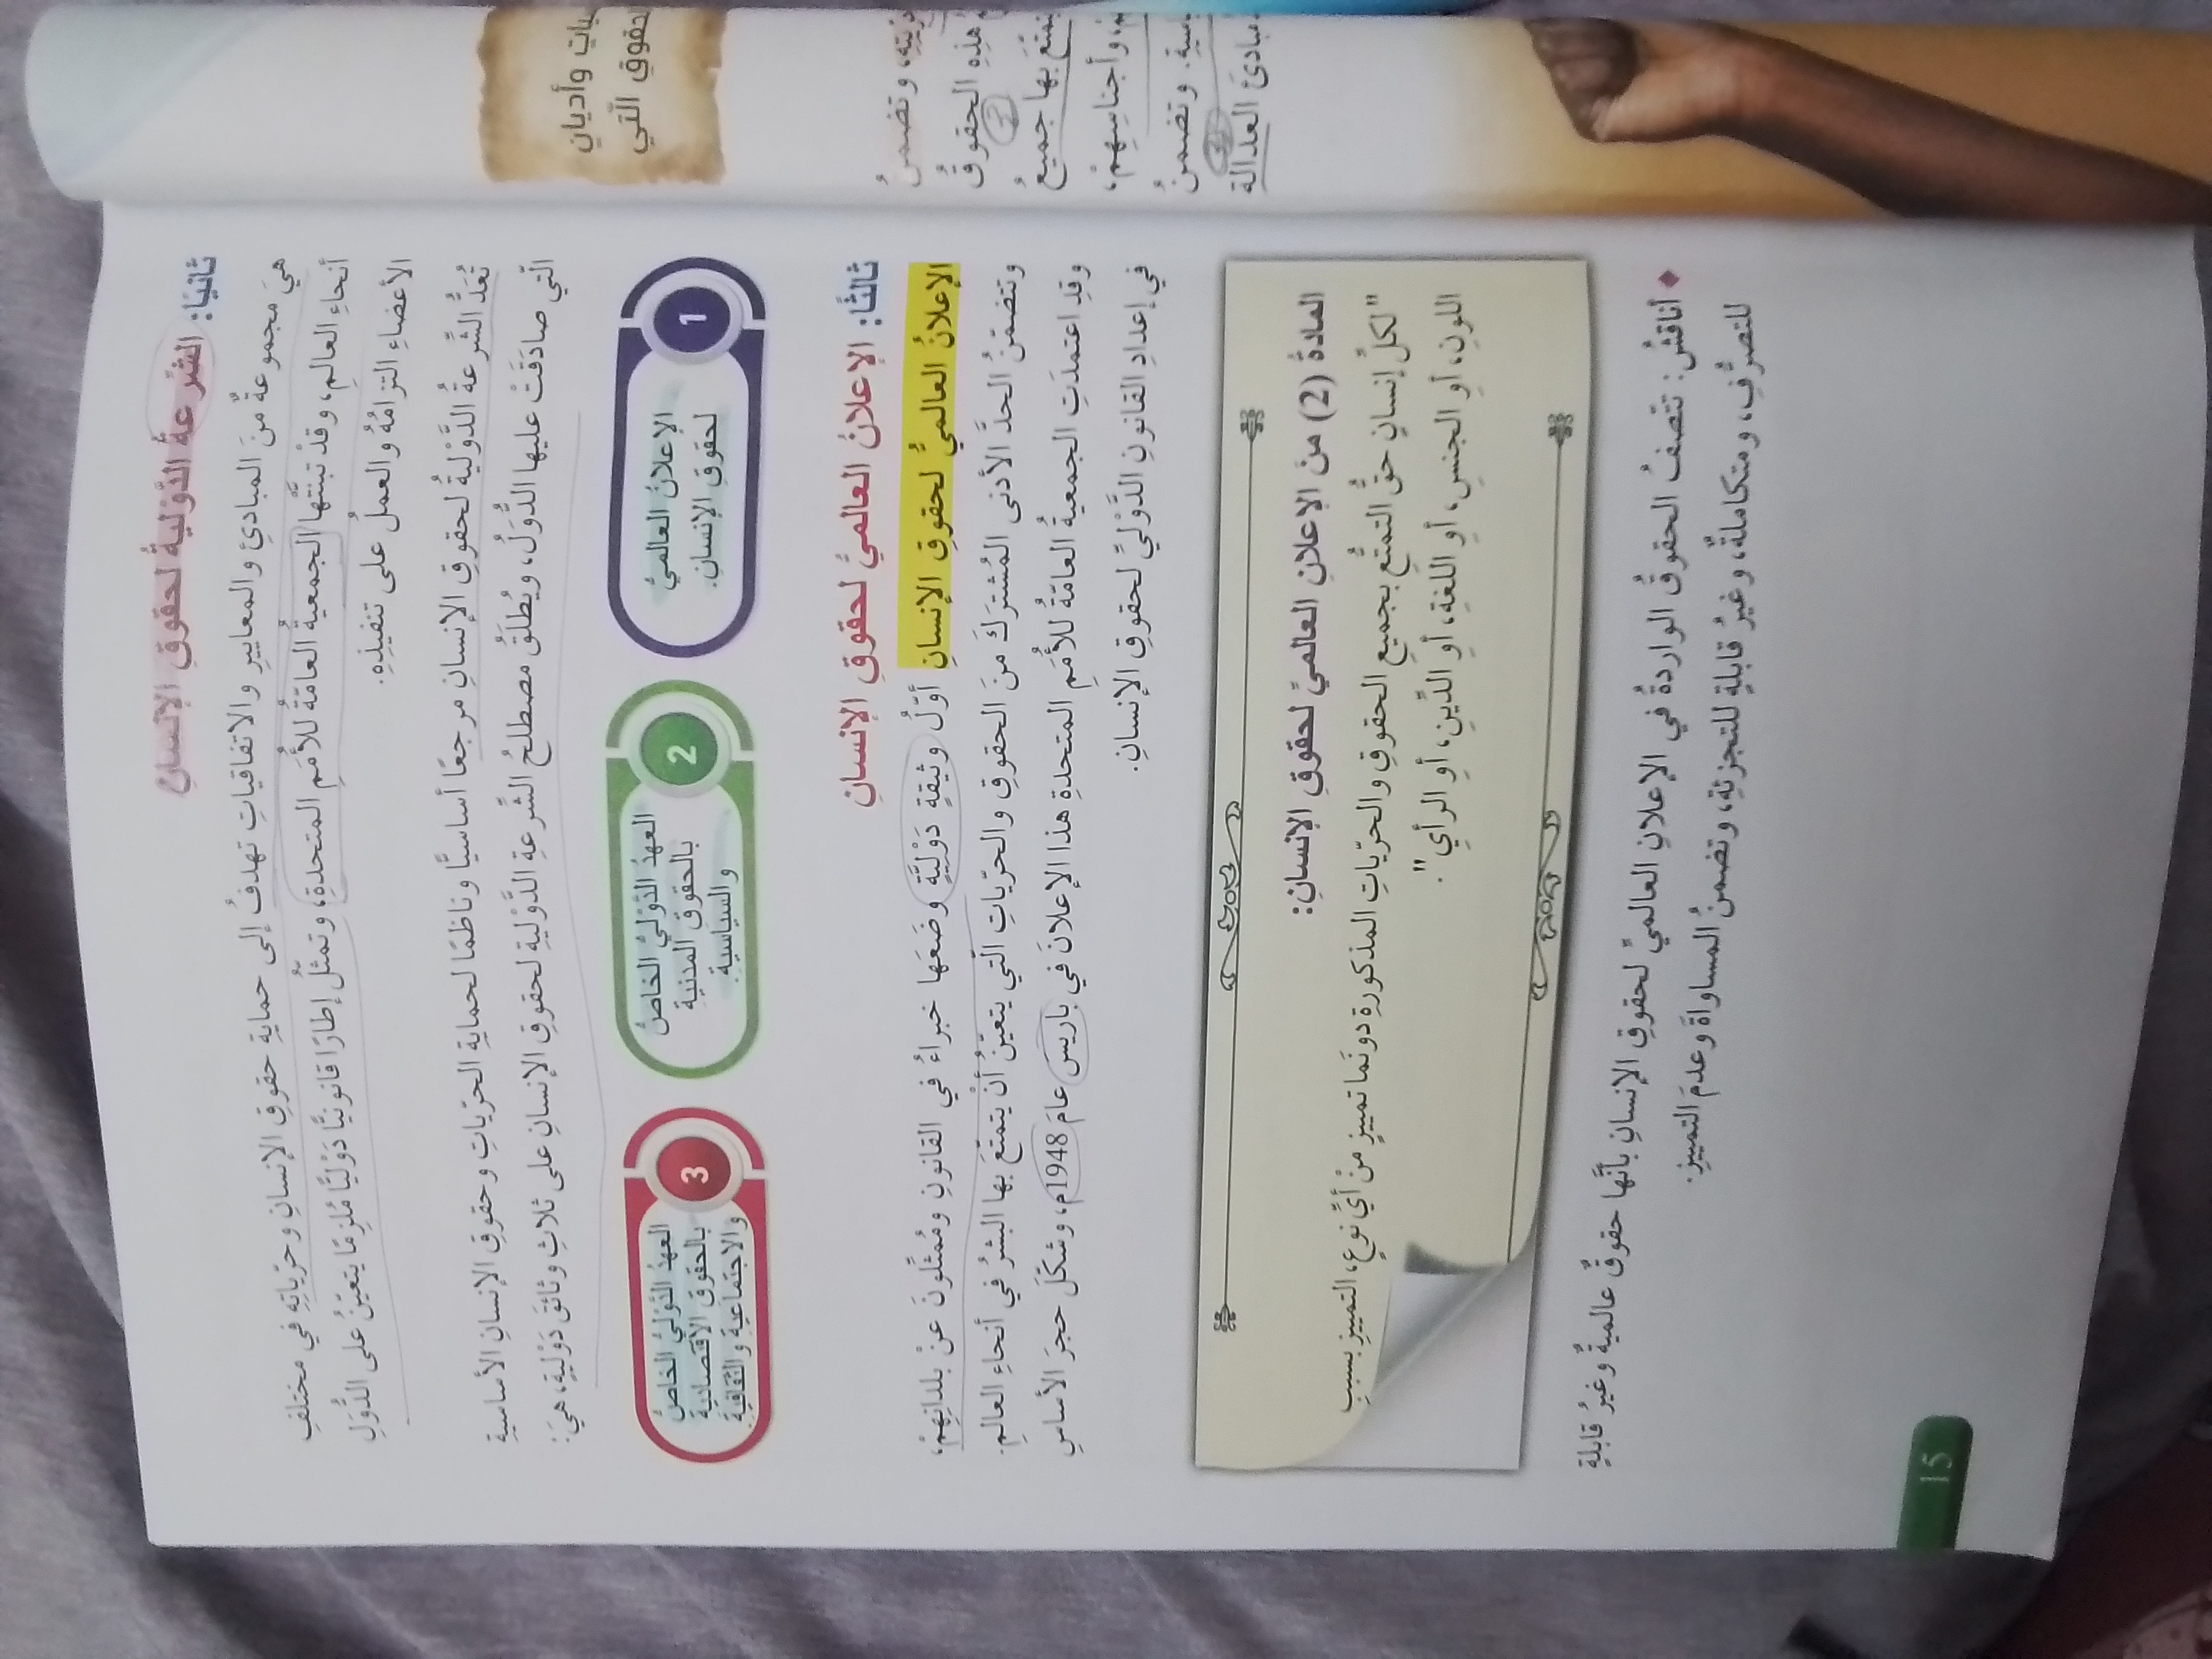 ثانيًا: الشّرعةُ الدَّوْليةُ لحقوقِ الإنسانِ
هيَ مجموعةٌ منَ المبادئِ والمعاييرِ والاتفاقياتِ تهدفُ إلى حمايةِ حقوقِ الإنسانِ وحرّياتِهِ في مختلفِ
أنحاءِ العالمِ، وقدْ تبنتْها الجمعيةُ العامّةُ للأُمَمِ المتحدةِ، وتمثّلُ إطارًا قانونيًّا دَوْليًّا مُلزِمًا يتعيّنُ على الدُّوَلِ
الأعضاءِ التزامُهُ والعملُ على تنفيذِهِ.
تُعَدُّ الشَّرعةُ الدَّوْليةُ لحقوقِ الإنسانِ مرجعًا أساسيًّا وناظمًا لحمايةِ الحرّياتِ وحقوقِ الإنسانِ الأساسيةِ
الّتي صادَقَتْ عليها الدُّوَلُ، ويُطلَقُ مصطلحُ الشَّرعةِ الدَّوْليةِ لحقوقِ الإنسانِ على ثلاثِ وثائقَ دَوْليةٍ، هيَ:
1
الإعلانُ العالميُّ
لحقوقِ الإنسانِ.
2
العهدُ الدَّوْليُّ الخاصُّ
بالحقوقِ المدنيةِ
والسياسيةِ.
3
العهدُ الدَّوْليُّ الخاصُّ
بالحقوقِ الاقتصاديةِ
والاجتماعيةِ والثقافيةِ.
ثالثًا: الإعلانُ العالميُّ لحقوقِ الإنسانِ
الإعلانُ العالميُّ لحقوقِ الإنسانِ أوّلُ وثيقةٍ دَوْليّةٍ وضَعَها خبراءُ في القانونِ ومُمثّلونَ عنْ بلدانِهِمْ،
وتتضمّنُ الحدَّ الأدنى المُشترَكَ منَ الحقوقِ والحرّياتِ الّتي يتعيّنُ أنْ يتمتّعَ بها البشرُ في أنحاءِ العالمِ.
وقدِ اعتمدَتِ الجمعيةُ العامّةُ للأُمَمِ المتحدةِ هذا الإعلانَ في باريسَ عامَ 1948م، وشكّلَ حجرَ الأساسِ
في إعدادِ القانونِ الدَّوْليِّ لحقوقِ الإنسانِ.
المادةُ (2) منَ الإعلانِ العالميِّ لحقوقِ الإنسانِ:
"لكلِّ إنسانٍ حقُّ التمتُّعِ بجميعِ الحقوقِ والحرّياتِ المذكورةِ دونَما تمييزٍ منْ أيِّ نوعٍ، التمييزِ بسببِ
اللونِ، أوِ الجنسِ، أوِ اللغةِ، أوِ الدّينِ، أوِ الرأيِ".
أناقشُ: تتّصفُ الحقوقُ الواردةُ في الإعلانِ العالميِّ لحقوقِ الإنسانِ بأنّها حقوقٌ عالميةٌ وغيرُ قابلةٍ
للتصرُّفِ، ومتكاملةٌ، وغيرُ قابلةٍ للتجزئةِ، وتضمنُ المساواةَ وعدمَ التمييزِ.
15
وأديانٍ
الّتي
وتضمنُ
هذِهِ الحقوقُ
بها جميعُ
وأجناسِهِمْ،
وتضمنُ
مبادئَ العدالةِ